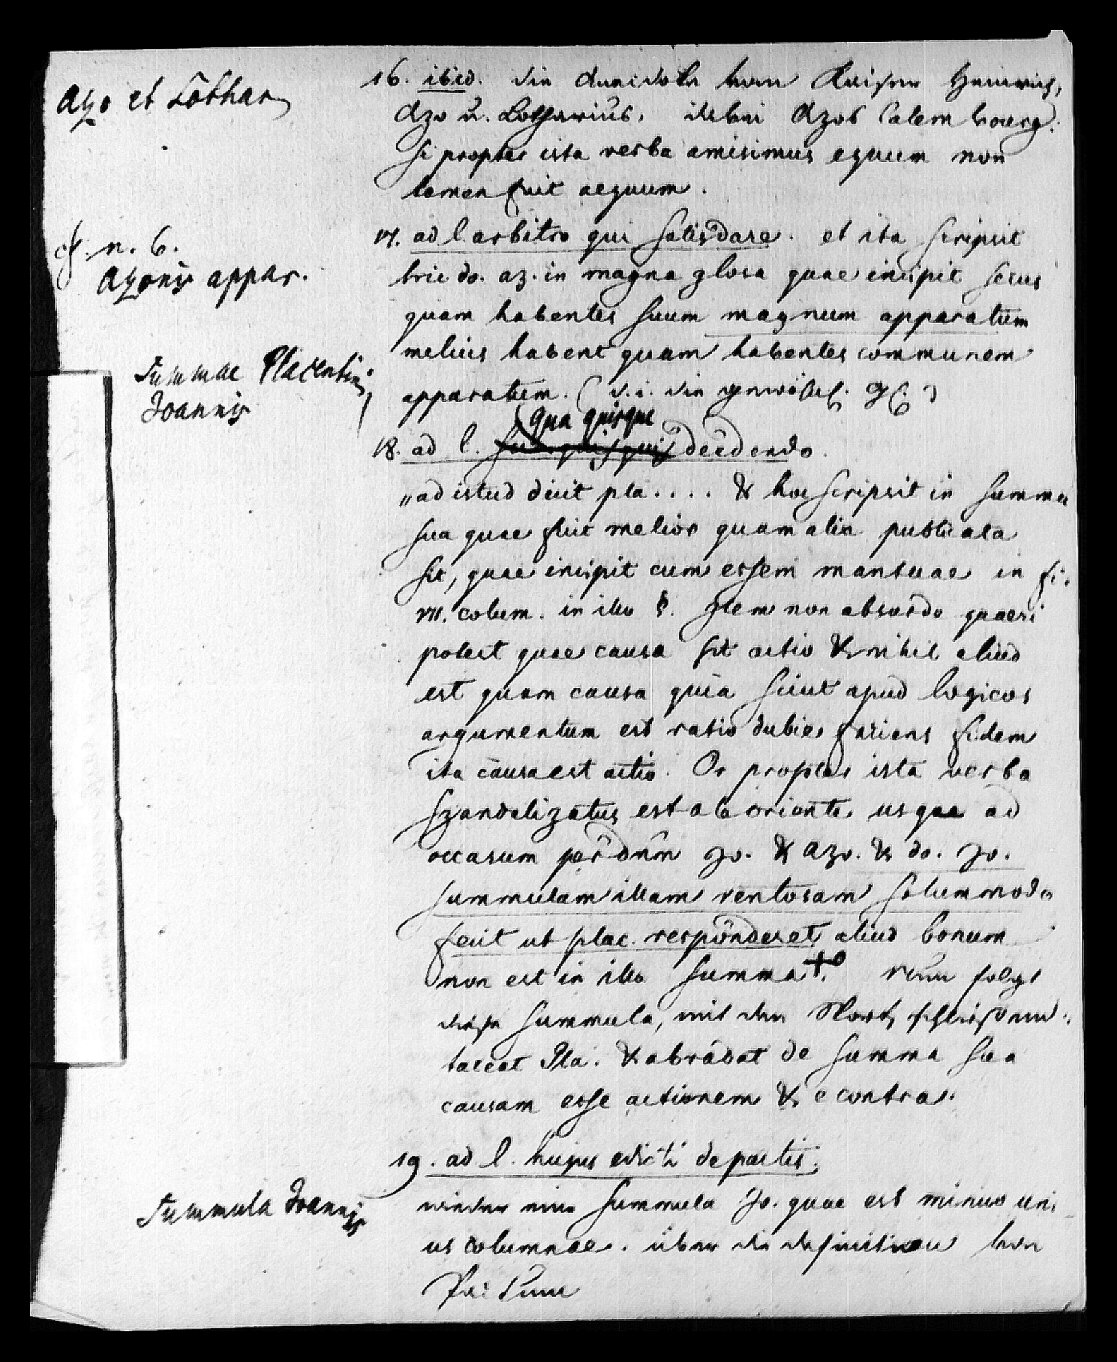 Azo et Lothar
16. ibid. die Anecdote von Kaiser Heinrich,
Azo u. Lotharius, dabei Azos Calembourg:
si propter ista verba amisimus equum non
tamen fuit aequum.
cf. n. 6.
Azonis appar.
17. ad l. arbitro qui satisdare. et ita scripsit
hic do. az. in magna glosa quae incipit
quam habentes suum magnum apparatum
melius habent quam habentes communem
apparatum. (d. i. die gewöhl. Gl.)
Summae Placentini,
Joannis
qua quisque
18. ad l. de edendo.
„ad istud dicit pla.... & hoc scripsit in summa
sua quae fuit melior quam alia publicata
sit, quae incipit cum essem mantuae in fi.
VII. colum. in illo §. Item non absurdo quaeri
potest quae causa sit actio & nihil aliud
est quam causa quia sicut apud logicos
argumentum est ratio dubie faciens fidem
ita causa est actio. Or propter ista verba
Szandalizatus est ab oriente usque ad
occasum per dnm Jo. & Azo. & do. Jo.
summulam illam ventosam solummodo
fecit ut plac. responderet, aliud bonum
non est in illa summa +o. nun folgt
diese Summula, mit den Worten schließend:
taceat Pla. & abradat de summa sua
causam esse actionem & e contra.
19. ad l. hujus edicti de pactis.
Summula Joannis
wieder eine Summula Jo. quae est minus uni-
us columnae. über die definition von
Pactum